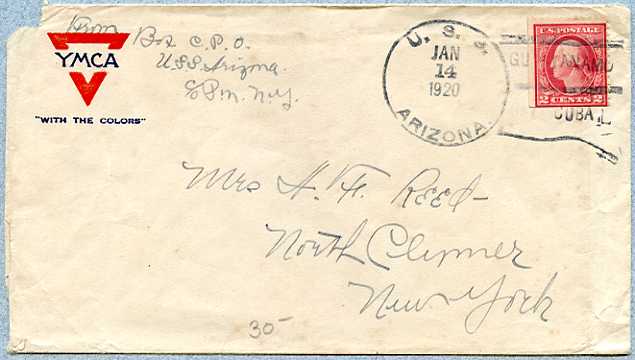 From Box C.P.O.
U.S.S. Arizona.
c/o P.m. N.Y.
YMCA
"WITH THE COLORS"
U. S. S.
JAN
14
1920
ARIZONA.
U.S. POSTAGE
2 CENTS 2
GUANTANAMO
CUBA
Mrs H. H. Reed-
North Clymer
New York
30-